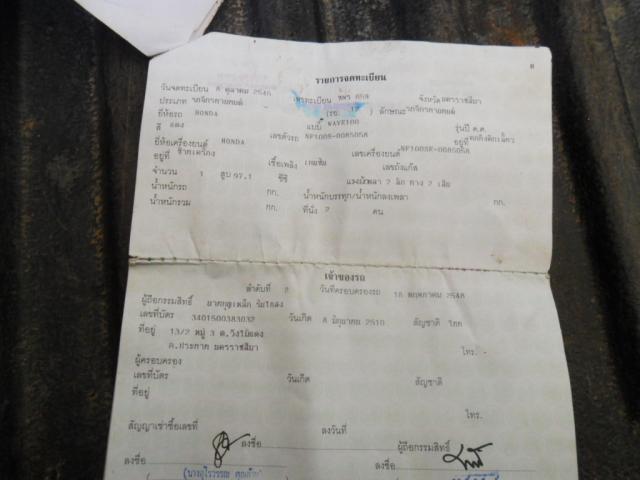 8
รายการจดทะเบียน
วันจดทะเบียน 8 ตุลาคม 2546 เลขทะเบียน จังหวัด นครราชสีมา
ประเภท รถจักรยานยนต์ (รย. 12) ลักษณะ รถจักรยานยนต์
ยี่ห้อรถ HONDA แบบ WAVE100 รุ่นปี ค.ศ.
สี แดง เลขตัวรถ NF100S-0085058 อยู่ที่
ยี่ห้อเครื่องยนต์ HONDA เลขเครื่องยนต์ NF100SE-0085058
อยู่ที่ เชื้อเพลิง เบนซิน เลขถังแก๊ส
จำนวน 1 สูบ 97.1 ซีซี แรงม้า เพลา 2 ล้อ ยาง 2 เส้น
น้ำหนักรถ กก. น้ำหนักบรรทุก/น้ำหนักลงเพลา กก.
น้ำหนักรวม กก. ที่นั่ง 2 คน
เจ้าของรถ
ลำดับที่ 2 วันที่ครอบครองรถ 18 พฤษภาคม 2548
ผู้ถือกรรมสิทธิ์
เลขที่บัตร 3401500383032 วันเกิด 8 มิถุนายน 2510 สัญชาติ ไทย
ที่อยู่ 13/2 หมู่ 3 ต.วังไม้แดง
อ.ประทาย นครราชสีมา โทร.
ผู้ครอบครอง
เลขที่บัตร วันเกิด สัญชาติ
ที่อยู่
โทร.
สัญญาเช่าซื้อเลขที่ ลงวันที่
ลงชื่อ ผู้ถือกรรมสิทธิ์
ลงชื่อ